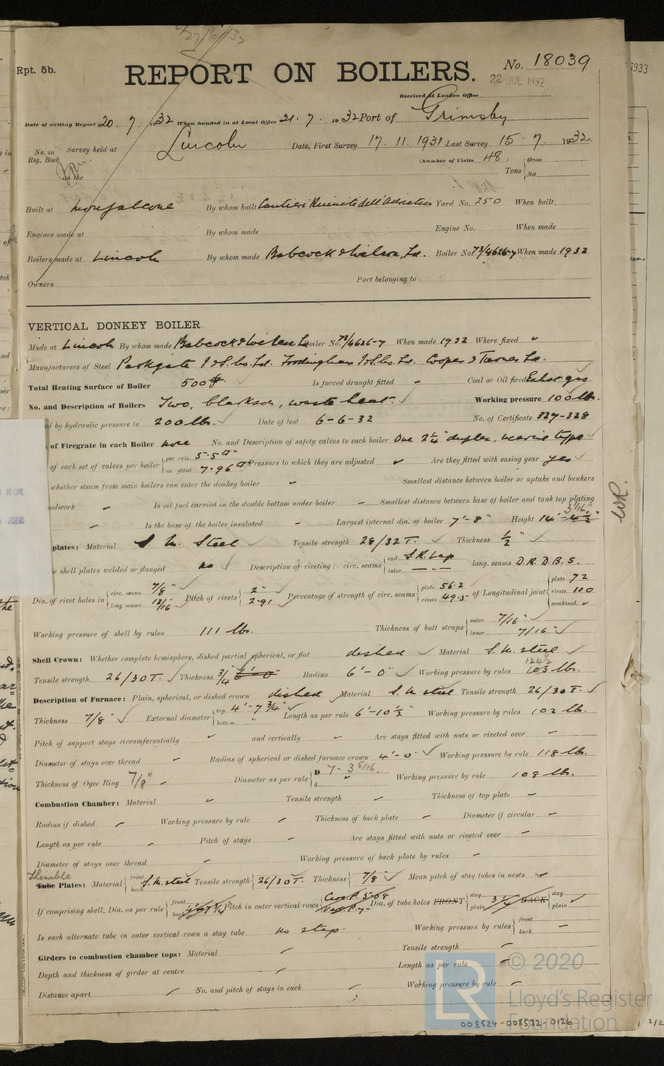 Rpt. 5b.
REPORT ON BOILERS.
No. 18039
22 JUL 1932
Received at London Office
Date of writing Report 20.7.1932 When handed in at Local Office 21.7.1932 Port of Grimsby
No. in Reg. Book Survey held at Lincoln Date, First Survey 17.11.1931 Last Survey 15.7.1932
on the (Number of Visits 48
Tons { Gross Net
Built at Monfalcone By whom built Cantieri Riuniti dell'Adriatico Yard No. 250 When built
Engines made at By whom made Engine No. When made
Boilers made at Lincoln By whom made Babcock & Wilcox, Ld. Boiler No. 73/4626-7 When made 1932
Owners Port belonging to
VERTICAL DONKEY BOILER.
Made at Lincoln By whom made Babcock & Wilcox Ld Boiler No. 73/4626-7 When made 1932 Where fixed "
Manufacturers of Steel Parkgate I & S. Co. Ld. Frodingham I & S. Co. Ld.
Total Heating Surface of Boiler 500 Is forced draught fitted Coal or Oil fired Exhst gas
No. and Description of Boilers Two, Clarkson, waste heat. Working pressure 100 lbs.
d by hydraulic pressure to 200 lbs. Date of test 6-6-32 No. of Certificate 327-328
of Firegrate in each Boiler none No. and Description of safety valves to each boiler One duplex, marine type
of each set of valves per boiler { per rule 5.5 as fitted 7.96 Pressure to which they are adjusted Are they fitted with easing gear yes
whether steam from main boilers can enter the donkey boiler Smallest distance between boiler or uptake and bunkers
woodwork Is oil fuel carried in the double bottom under boiler Smallest distance between base of boiler and tank top plating
Is the base of the boiler insulated Largest internal dia. of boiler 7'-8" Height 14'-
plates: Material S. M. Steel Tensile strength 28/32 T. Thickness 1/2"
shell plates welded or flanged no Description of riveting: circ. seams { end S.R. Lap inter. long. seams D.R. D.B.S.
Dia. of rivet holes in { circ. seams 7/8" long. seams 13/16" Pitch of rivets { 2" 2.91 Percentage of strength of circ. seams { plate 56.2 rivets 49.5 of Longitudinal joint { plate 72 rivets 110 combined
Working pressure of shell by rules 111 lbs. Thickness of butt straps { outer 7/16" inner 7/16"
Shell Crown: Whether complete hemisphere, dished partial spherical, or flat dished Material S. M. steel
Tensile strength 26/30 T. Thickness 3/4 Radius 6'-0" Working pressure by rules lbs.
Description of Furnace: Plain, spherical, or dished crown dished Material S. M. steel Tensile strength 26/30 T.
Thickness 7/8" External diameter { top 4'-7 3/4" bottom Length as per rule 6'-10 1/2 Working pressure by rules 102 lbs.
Pitch of support stays circumferentially and vertically Are stays fitted with nuts or riveted over
Diameter of stays over thread Radius of spherical or dished furnace crown 4'-0" Working pressure by rule 118 lbs.
Thickness of Ogee Ring 7/8" Diameter as per rule { D 7-3 5/16 d Working pressure by rule 108 lbs.
Combustion Chamber: Material Tensile strength Thickness of top plate
Radius if dished Working pressure by rule Thickness of back plate Diameter if circular
Length as per rule Pitch of stays Are stays fitted with nuts or riveted over
Diameter of stays over thread Working pressure of back plate by rules
Thimble
Tube Plates: Material { front back S.M. steel Tensile strength 26/30 T. Thickness { 7/8" Mean pitch of stay tubes in nests
If comprising shell, Dia. as per rule { front back Pitch in outer vertical rows Dia. of tube holes FRONT { stay plain 3 1/4 BACK { stay plain
Is each alternate tube in outer vertical rows a stay tube no stay. Working pressure by rules { front back
Girders to combustion chamber tops: Material Tensile strength
Depth and thickness of girder at centre Length as per rule
Distance apart No. and pitch of stays in each Working pressure by rule
LR © 2020
Lloyd's Register
Foundation
008524-008532-0126